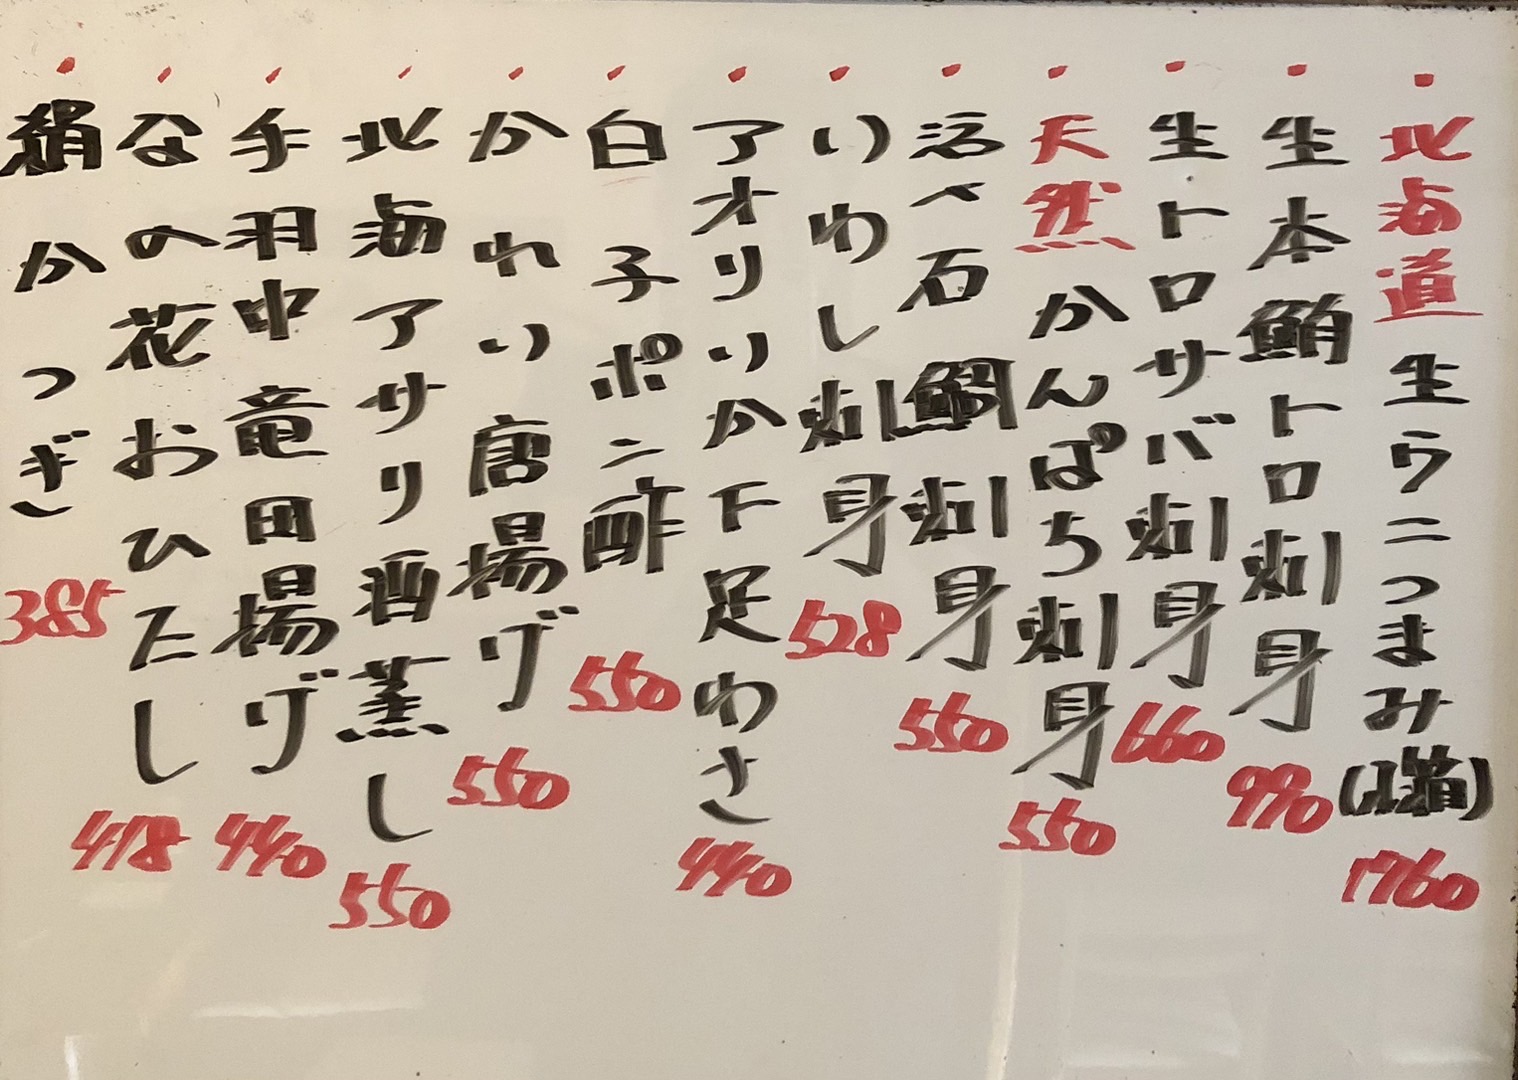 北海道生ウニつまみ(小箱) 1760
生本鮪トロ刺身 990
生トロサバ刺身 660
天然かんぱち刺身 550
活〆石鯛刺身 550
いわし刺身 528
アオリいか下足わさ 440
白子ポン酢 550
かれい唐揚げ 550
北海アサリ酒蒸し 550
手羽中竜田揚げ 440
なの花おひたし 418
絹かつぎ 385